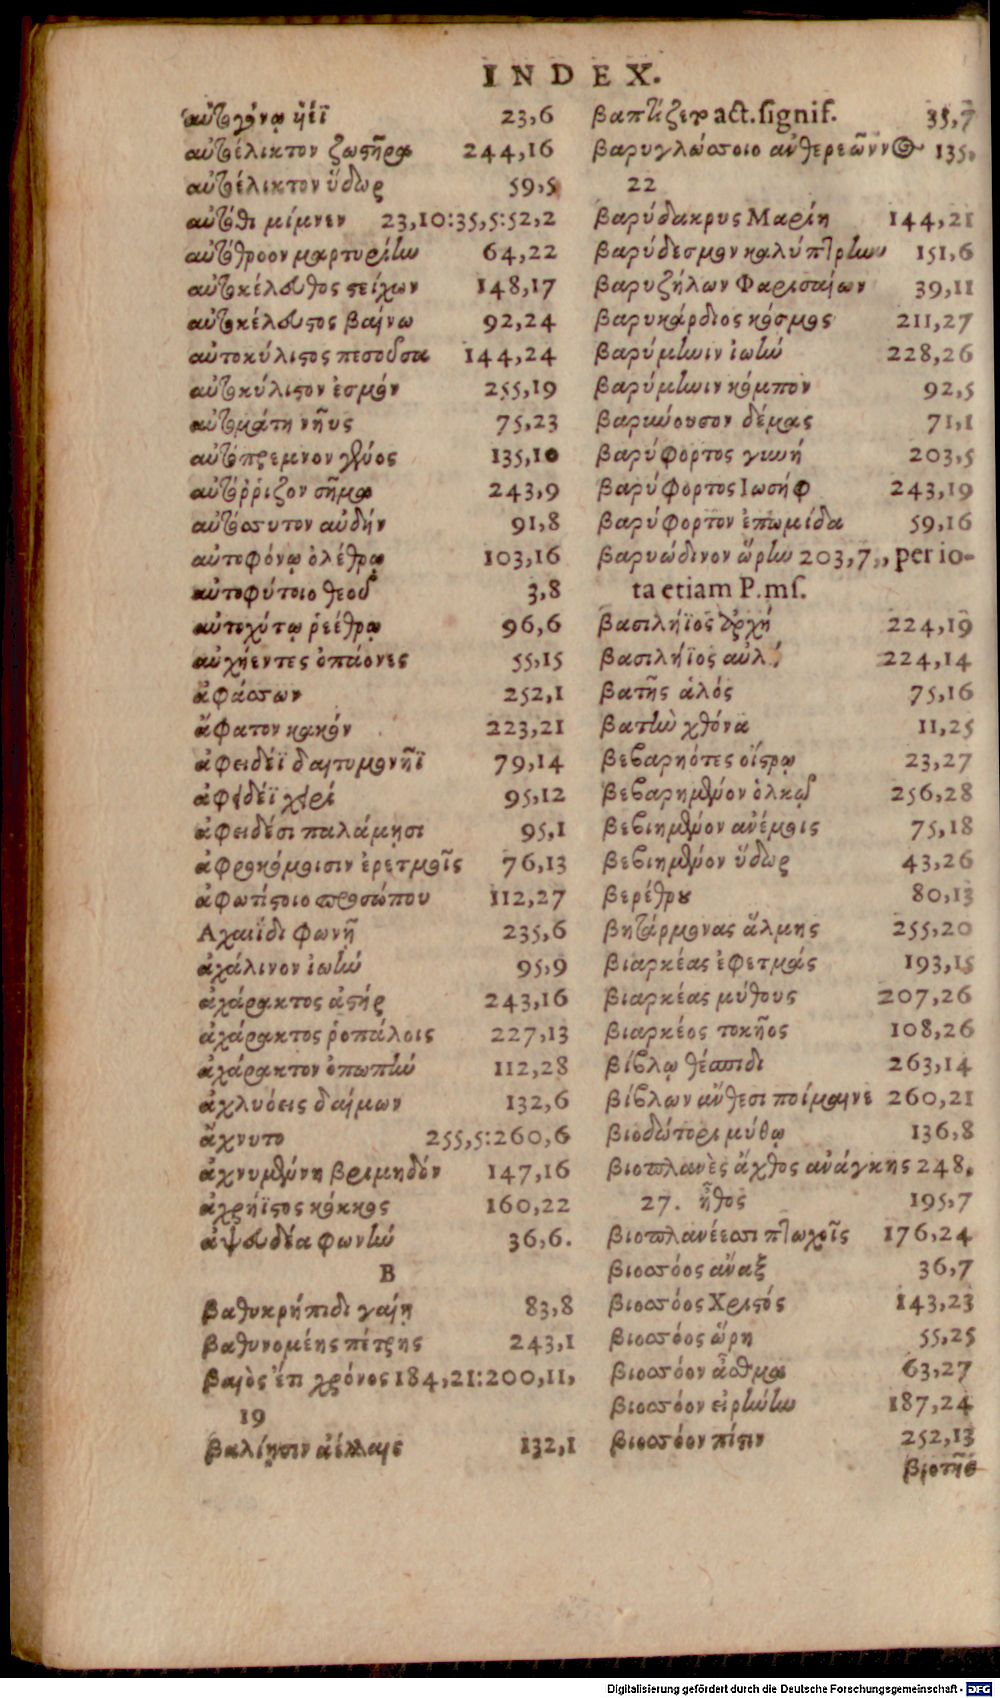 INDEX.
αὐτογόνῳ υἱέϊ 23,6
αὐτοέλικτον ζωστῆρα 244,16
αὐτοέλικτον ὕδωρ 59,5
αὐτόθι μίμνεν 23,10:35,5:52,2
αὐτόθροον μαρτυρίην 64,22
αὐτοκέλευθος στείχων 148,17
αὐτοκέλευστος βαίνω 92,24
αὐτοκύλιστος πεσοῦσα 144,24
αὐτοκύλιστον ἑσμόν 255,19
αὐτομάτη νηῦς 75,23
αὐτόπρεμνον 135,10
αὐτόῤῥιζον σῆμα 243,9
αὐτόσσυτον αὐδήν 91,8
αὐτοφόνῳ ὀλέθρῳ 103,16
αὐτοφύτοιο θεοῦ 3,8
αὐτοχύτῳ ῥεέθρῳ 96,6
αὐχήεντες ὀπάονες 55,15
ἀφάσσων 252,1
ἄφατον κακόν 223,21
ἀφειδέϊ δαιτυμονῆϊ 79,14
ἀφειδέϊ χειρί 95,12
ἀφειδέσι παλάμῃσι 95,1
ἀφροκόμοισιν ἐρετμοῖς 76,13
ἀφωτίστοιο προσώπου 112,27
Αχαιΐδι φωνῇ 235,6
ἀχάλινον ἰωήν 95,9
ἀχάρακτος ἀστήρ 243,16
ἀχάρακτος ῥοπάλοις 227,13
ἀχάρακτον ὀπωπήν 112,28
ἀχλυόεις δαίμων 132,6
ἄχνυτο 255,5:260,6
ἀχνυμένη βριμηδόν 147,16
ἀχρήϊστος κόκκος 160,22
ἀψευδέα φωνήν 36,6.
B
βαθυκρήπιδι γαίῃ 83,8
βαθυνομένης πέτρης 243,1
βαιὸς ἔπι χρόνος 184,21:200,11,
19
βαλίῃσιν ἀέλλαις 132,1
βαπτίζειν act.signif. 35,7
βαρυγλώσσοιο ἀνθερεῶνος 135.
22
βαρύδακρυς Μαρίη 144,21
βαρύδεσμον καλύπτρην 151,6
βαρυζήλων Φαρισαίων 39,11
βαρυκάρδιος κόσμος 211,27
βαρύμηνιν ἰωήν 228,26
βαρύμηνιν κόμπον 92,5
βαρυνούσον δέμας 71,1
βαρύφορτος γυνή 203,5
βαρύφορτος Ιωσήφ 243,19
βαρύφορτον ἐπωμίδα 59,16
βαρυώδινον ὥρην 203,7,, per io-
ta etiam P.ms.
βασιλήϊος ἀρχή 224,19
βασιλήϊος αὐλή 224,14
βατῆς ἁλός 75,16
βατὴν χθόνα 11,25
βεβαρηότες οἴστρῳ 23,27
βεβαρημένον ὁλκῷ 256,28
βεβιημένον ἀνέμοις 75,18
βεβιημένον ὕδωρ 43,26
βερέθρου 80,13
βητάρμονας ἅλμης 255,20
βιαρκέας ἐφετμάς 193,15
βιαρκέας μύθους 207,26
βιαρκέος τοκῆος 108,26
βίβλῳ θέσπιδι 263,14
βίβλων ἄνθεσι ποίμαινε 260,21
βιοδώτορι μύθῳ 136,8
βιοπλανὲς ἄχθος ἀνάγκης 248.
27. ἦθος 195,7
βιοπλανέεσσι πτωχοῖς 176,24
βιοσσόος ἄναξ 36,7
βιοσσόος Χριστός 143,23
βιοσσόος ὥρη 55,25
βιοσσόον ἆσθμα 63,27
βιοσσόον εἰρήνην 187,24
βιοσσόον πίστιν 252,13
βιοτῆς
Digitalisierung gefördert durch die Deutsche Forschungsgemeinschaft - DFG